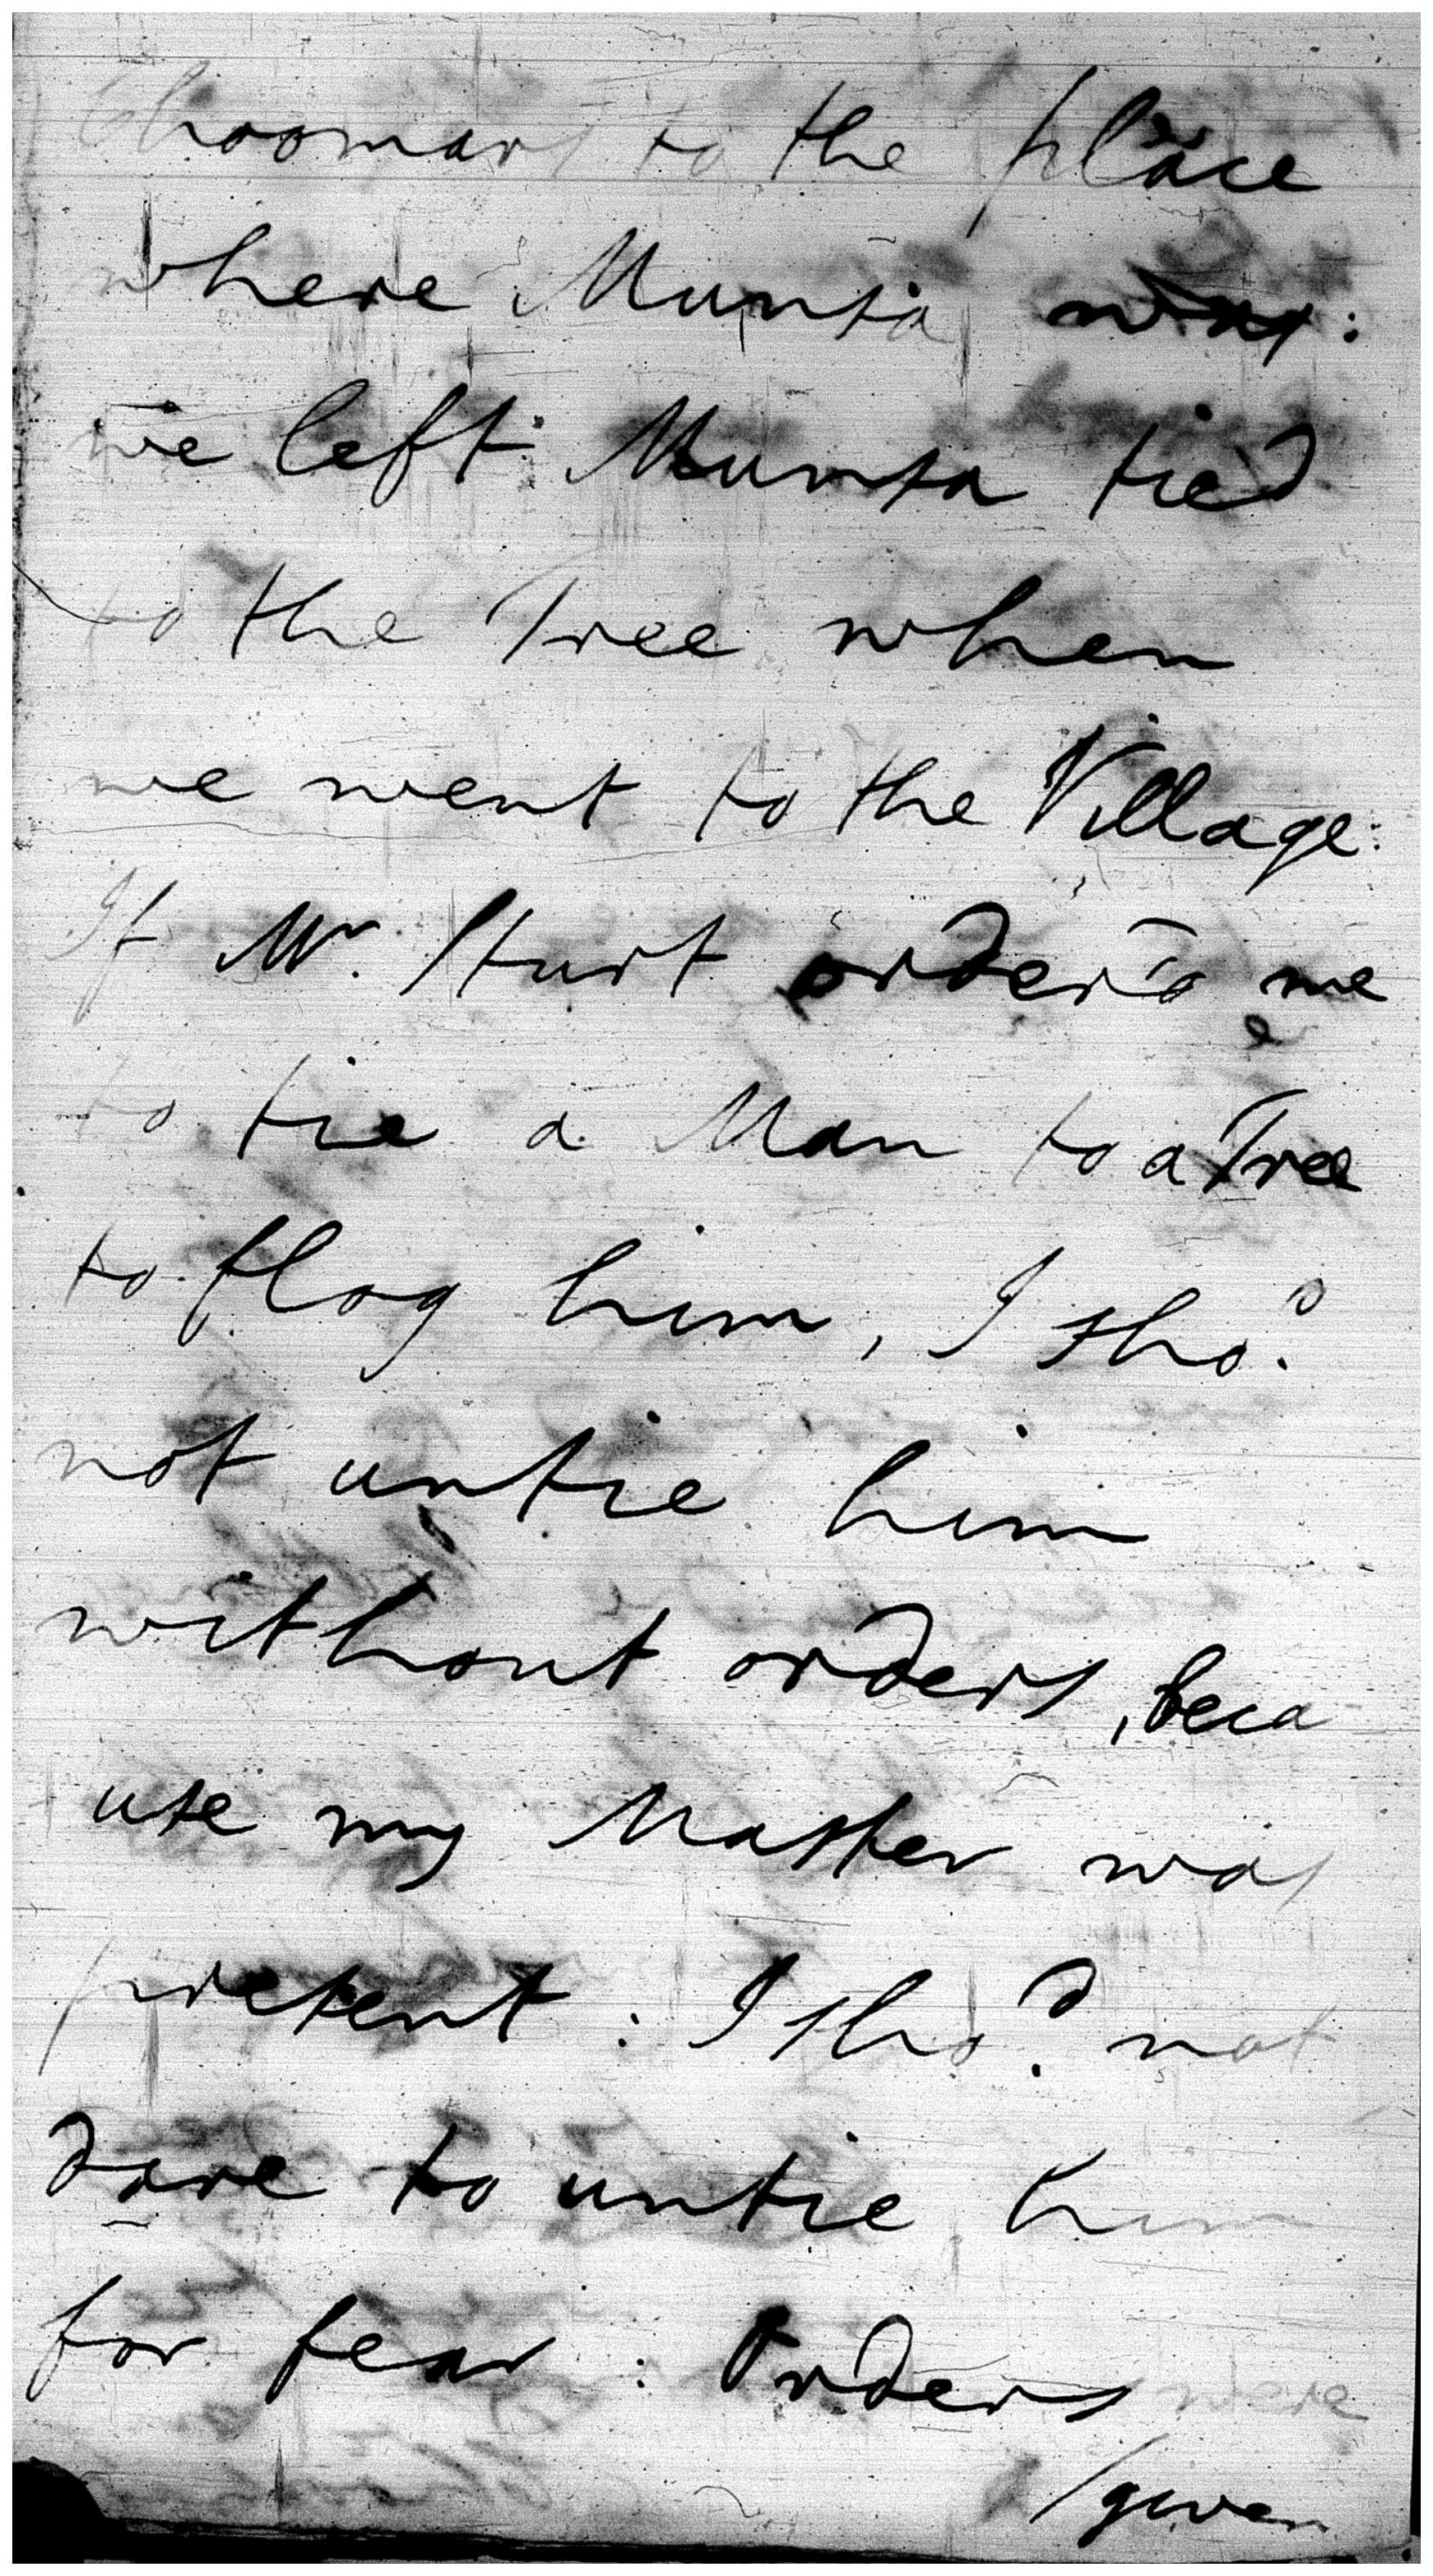 Choomars to the place
where Munsa was:
we left Munsa tied
to the Tree when
we went to the Village:
If Mr. Sturt order'd me
to tie a Man to a Tree
to flog him, I sho.d
not untie him
without orders, beca
use my Master was
present : I sho.d not
dare to untie him
for fear : Orders were
/given